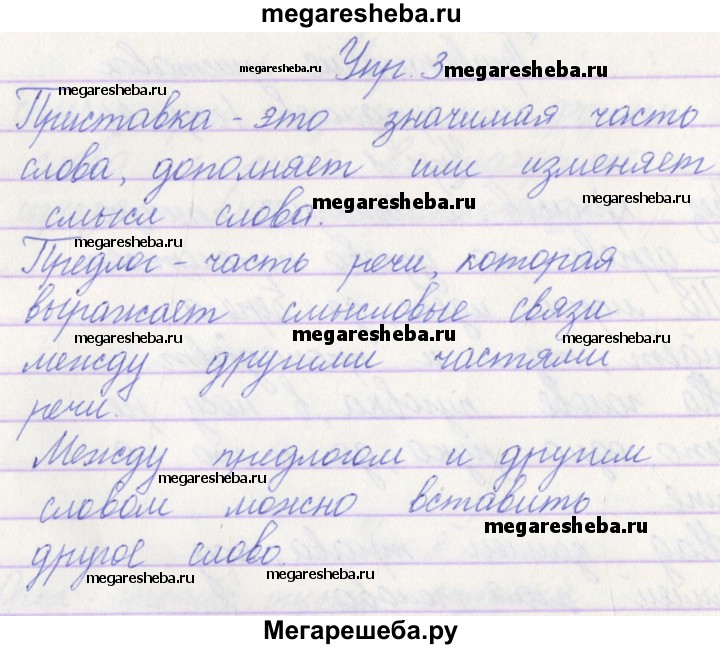 megaresheba.ru
megaresheba.ru Упр. 3 megaresheba.ru
megaresheba.ru
Приставка - это значимая часть
слова, дополняет или изменяет
megaresheba.ru megaresheba.ru
смысл слова.
megaresheba.ru
Предлог - часть речи, которая
выражает смысловые связи
megaresheba.ru megaresheba.ru
между другими частями
речи.
Между предлогом и другим
megaresheba.ru
словом можно вставить
megaresheba.ru
другое слово.
megaresheba.ru megaresheba.ru
Мегарешеба.ру